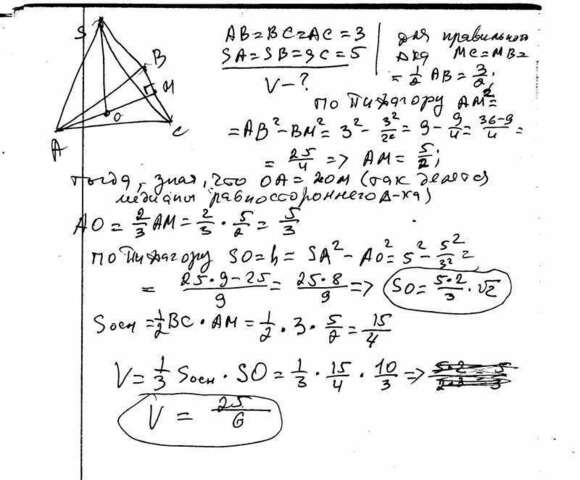 S
B
M
O
A
C
AB=BC=AC=3
SA=SB=SC=5
V-?
для правильного
Δка MC=MB=
=1/2 AB=3/2;
по Пифагору AM²=
=AB²-BM²=3²-3²/2²=9-9/4=36-9/4=
=25/4 => AM=5/2;
тогда, зная, что OA=2OM (так делятся
медианы равностороннего Δ-ка)
AO=2/3 AM=2/3·5/2=5/3
по Пифагору SO=h=SA²-AO²=5²-5²/3²=
=25·9-25/9=25·8/9=> SO=5·2/3·√2
Sосн=1/2 BC·AM=1/2·3·5/2=15/4
V=1/3 Sосн·SO=1/3·15/4·10/3=>
V=25/6